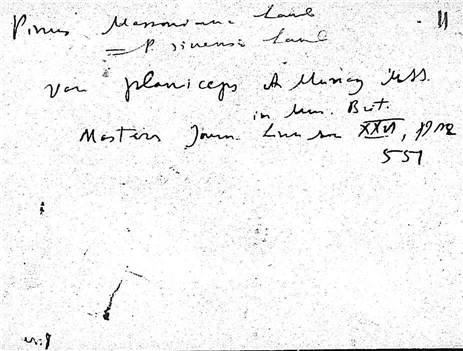 Pinus Massoniana Lamb 11
= P. sinensis Lamb
var planiceps A Murray MSS.
in Mus. Brit.
Masters Journ. Linn soc XXVI,
551